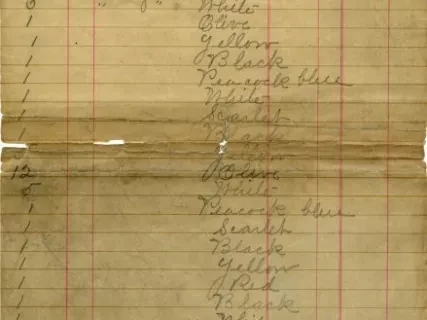 " " White
1 Olive
1 Yellow
1 Black
1 Peacock blue
1 White
1 Scarlet
1 Black
12 Olive
5 White
1 Peacock blue
1 Scarlet
1 Black
1 Yellow
1 Red
1 Black
White